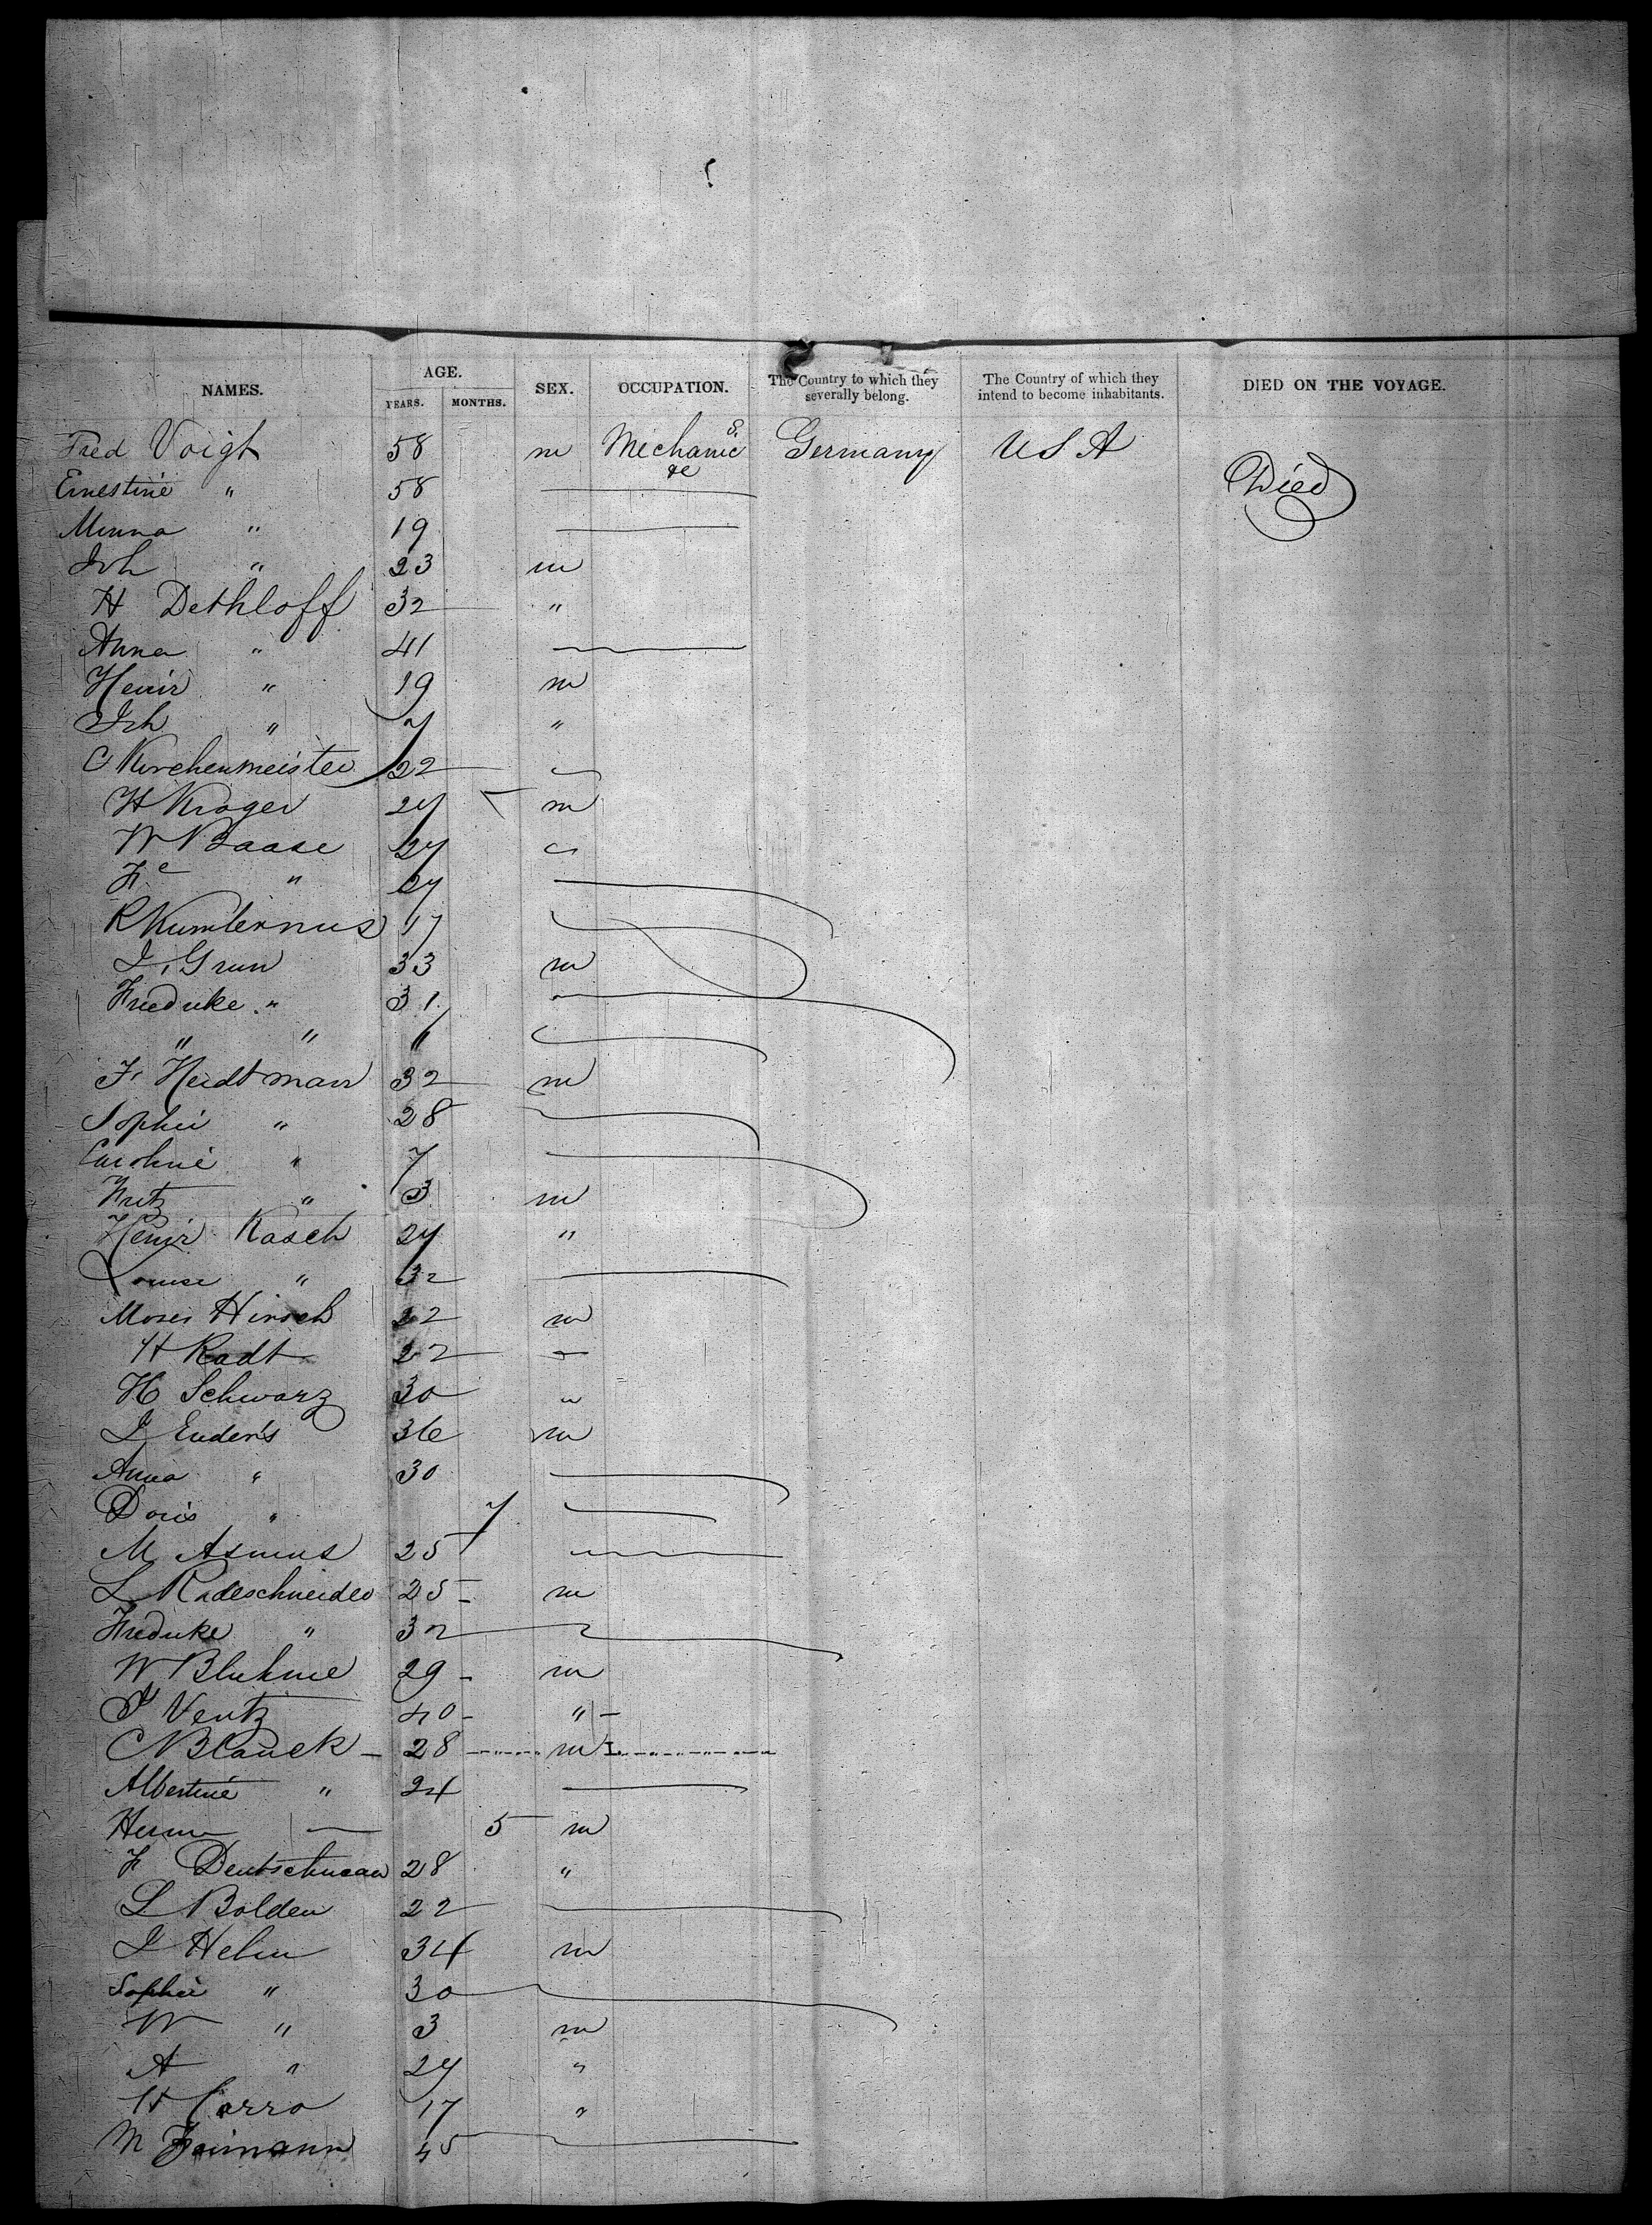 NAMES. AGE. YEARS. MONTHS. SEX. OCCUPATION. The Country to which they severally belong. The Country of which they intend to become inhabitants. DIED ON THE VOYAGE.
Fred Voigt 58 m Mechanics &c Germany U S A
Ernestine " 58 Died
Minna " 19
Joh " 23 m
H Dethloff 32 "
Anna " 41
Heinr " 19 m
Joh " 7 "
C Kirchenmeister 22
H Kroger 24 m
W Baase 24
Fr " 24
R 17
J. Grun 33 m
Friedrike " 31
" " "
Fr Heidtman 32 m
Sophie " 28
Caroline " 7
Fritz " 3 m
Heinr Kasch 24 "
Louise " 32
Moses Hirsch 22 m
H Radt 22
H Schwarz 30 "
J Enders 36 m
Anna " 30
Doris " 7
M Asmus 25
L Radeschneider 25 m
Friedrike " 32
W Bluhme 29 m
J Ventz 40 "
C Blanck 28 m
Albertine " 24
Herm 5 m
F Deutschman 28 "
L Bolden 22
J Helm 34 m
Sophie " 30
W " 3 m
A " 24 "
H Carro 17 "
M 45